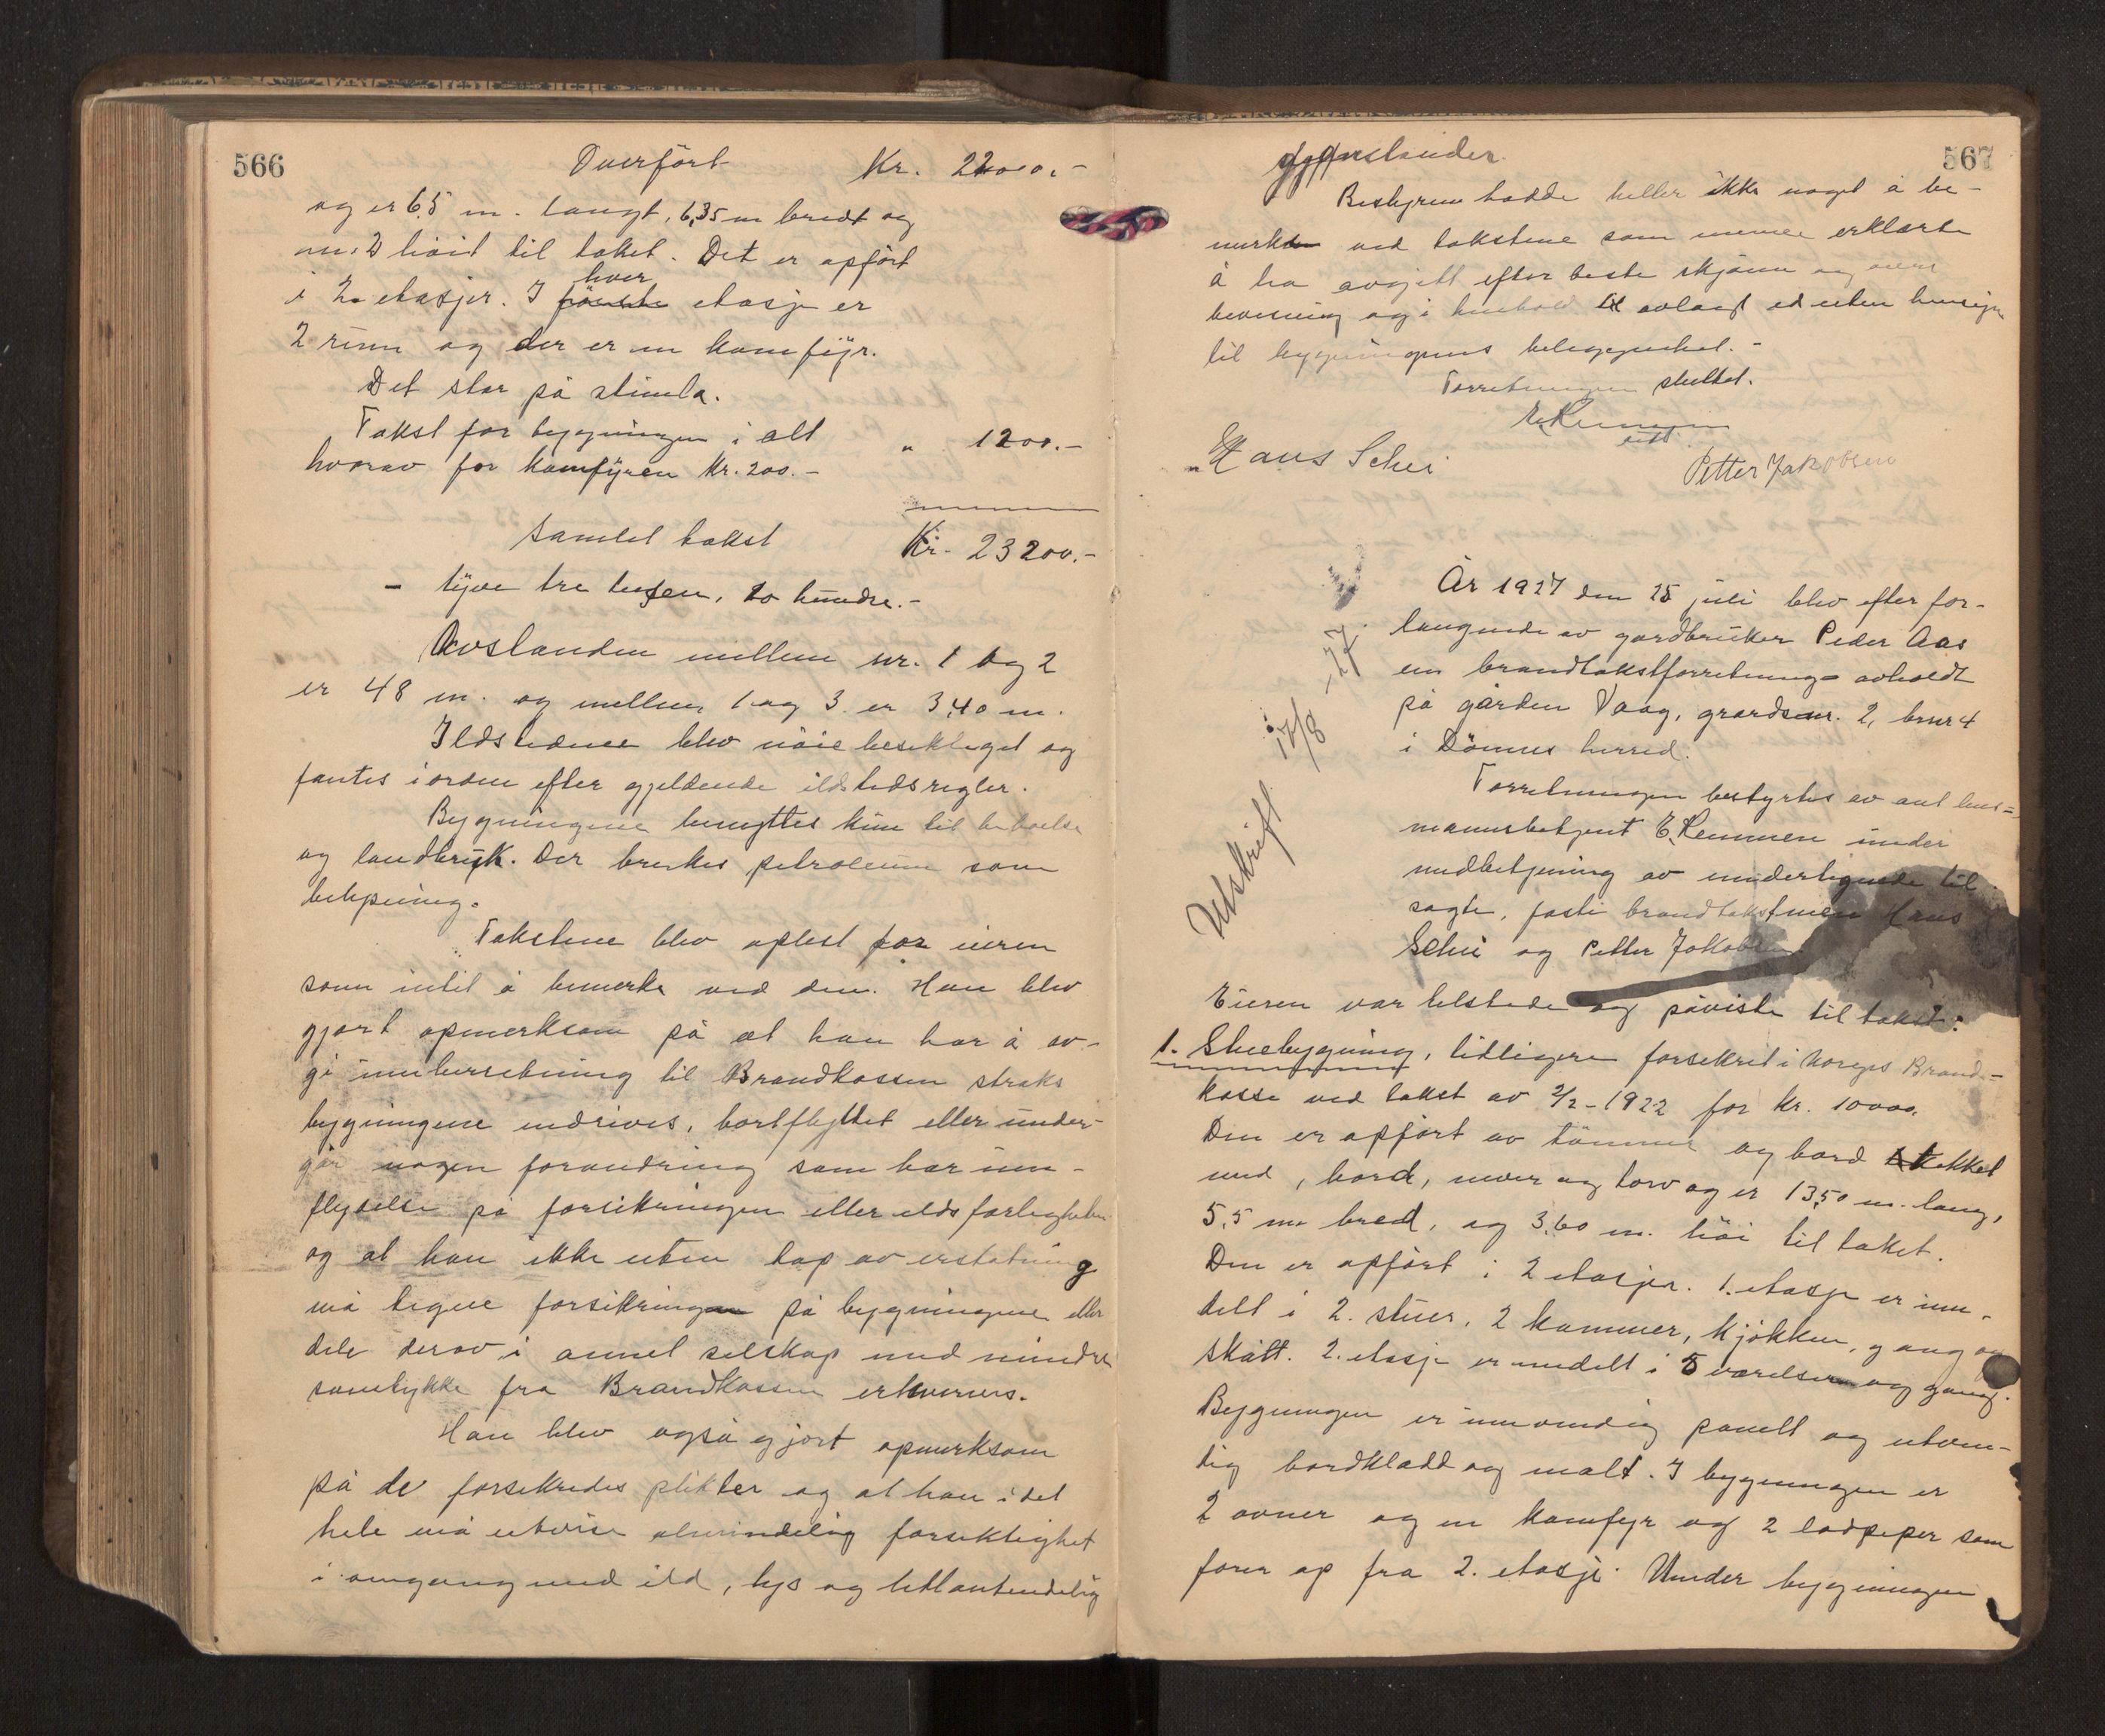 566
Overført Kr. 22000.-
og er 6,5 m. langt, 6,35 m bredt og
m. høit til taket. Det er opført
i 2 etasjer. I første hver etasje er
2 rum og der er en komfyr.
Det står på
Takst for bygningen i alt " 1200.-
hvorav for komfyren Kr. 200.-
Samlet takst Kr. 23200.-
- tyve tre tusen, to hundre.-
Avstanden mellem nr. 1 og 2
er 48 m. og mellem 1 og 3 er 3,40 m.
Ildstedene blev nöie besiktiget og
fantes i orden efter gjeldende ildstedsregler.
Bygningene benyttes kun til beboelse
og landbruk. Der brukes petroleum som
belysning.
Takstene blev oplest for eieren
som intet å bemerke ved dem. Han blev
gjort opmerksom på at han har å av-
gi innberetning til Brandkassen straks
bygningene nedrives, bortflyttet eller under-
går nogen forandring som har inn-
flydelse på forsikringen eller ildsfarligheten
og at han ikke uten tap av erstatning
må tegne forsikringen på bygningene eller
dele derav i annet selskap med mindre
samtykke fra Brandkassen erhverves.
Han blev også gjort opmerksom
på de forsikredes plikter og at han i det
hele må utvise almindelig forsiktighet
i omgang med ild, lys og lettantendelig
567
gjenstander.
Bestyreren hadde heller ikke noget å be-
merke ved takstene som mennene erklærte
å ha avgitt efter beste skjønn og
bevisning og i henhold til avlagt ed uten hensyn
til bygningens beliggenhet.-
Forretningen sluttet.
E. Remmen
Hans Schei Petter Jakobsen
År 1927 den 25 juli blev efter for-
langende av gardbruker Peder Aas
en brandtakstforretning avholdt
på gården Vaag, gnr. 2, brnr 4
i Dönnes herred.
Forretningen bestyrtes av lens-
mannsbetjent E. Remmen under
medbetjening av undertegnede til-
sagte, faste brandtakstmenn Hans
Schei og Petter Jakobsen
Utskrift 17/8 -27.
Eieren var tilstede og påviste til takst:
1. Stuebygning, tidligere forsikret i Norges Brand-
kasse ved takst av 2/2-1922 for kr. 10000.
Den er opført av tömmer og bord tekket
med, bord, never og torv og er 13,50 m. lang,
5,5 m bred, og 3,60 m. höi til taket.
Den er opført i 2 etasjer. 1. etasje er inn-
delt i 2. stuer, 2 kammer, kjökken, gang og
skått. 2. etasje er inndelt i 5 værelser og gang.
Bygningen er innvendig panelt og utven-
dig bordkledd og malt. I bygningen er
2 ovner og en komfyr og 2 lodpiper som
fører op fra 2. etasje. Under bygningen